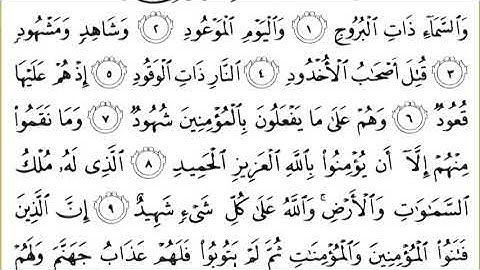 وَٱلسَّمَآءِ ذَاتِ ٱلْبُرُوجِ ١ وَٱلْيَوْمِ ٱلْمَوْعُودِ ٢ وَشَاهِدٍ وَمَشْهُودٍ
٣ قُتِلَ أَصْحَٰبُ ٱلْأُخْدُودِ ٤ ٱلنَّارِ ذَاتِ ٱلْوَقُودِ ٥ إِذْ هُمْ عَلَيْهَا
قُعُودٌ ٦ وَهُمْ عَلَىٰ مَا يَفْعَلُونَ بِٱلْمُؤْمِنِينَ شُهُودٌ ٧ وَمَا نَقَمُوا۟
مِنْهُمْ إِلَّآ أَن يُؤْمِنُوا۟ بِٱللَّهِ ٱلْعَزِيزِ ٱلْحَمِيدِ ٨ ٱلَّذِى لَهُۥ مُلْكُ
ٱلسَّمَٰوَٰتِ وَٱلْأَرْضِ ۚ وَٱللَّهُ عَلَىٰ كُلِّ شَىْءٍ شَهِيدٌ ٩ إِنَّ ٱلَّذِينَ
فَتَنُوا۟ ٱلْمُؤْمِنِينَ وَٱلْمُؤْمِنَٰتِ ثُمَّ لَمْ يَتُوبُوا۟ فَلَهُمْ عَذَابُ جَهَنَّمَ وَلَهُمْ